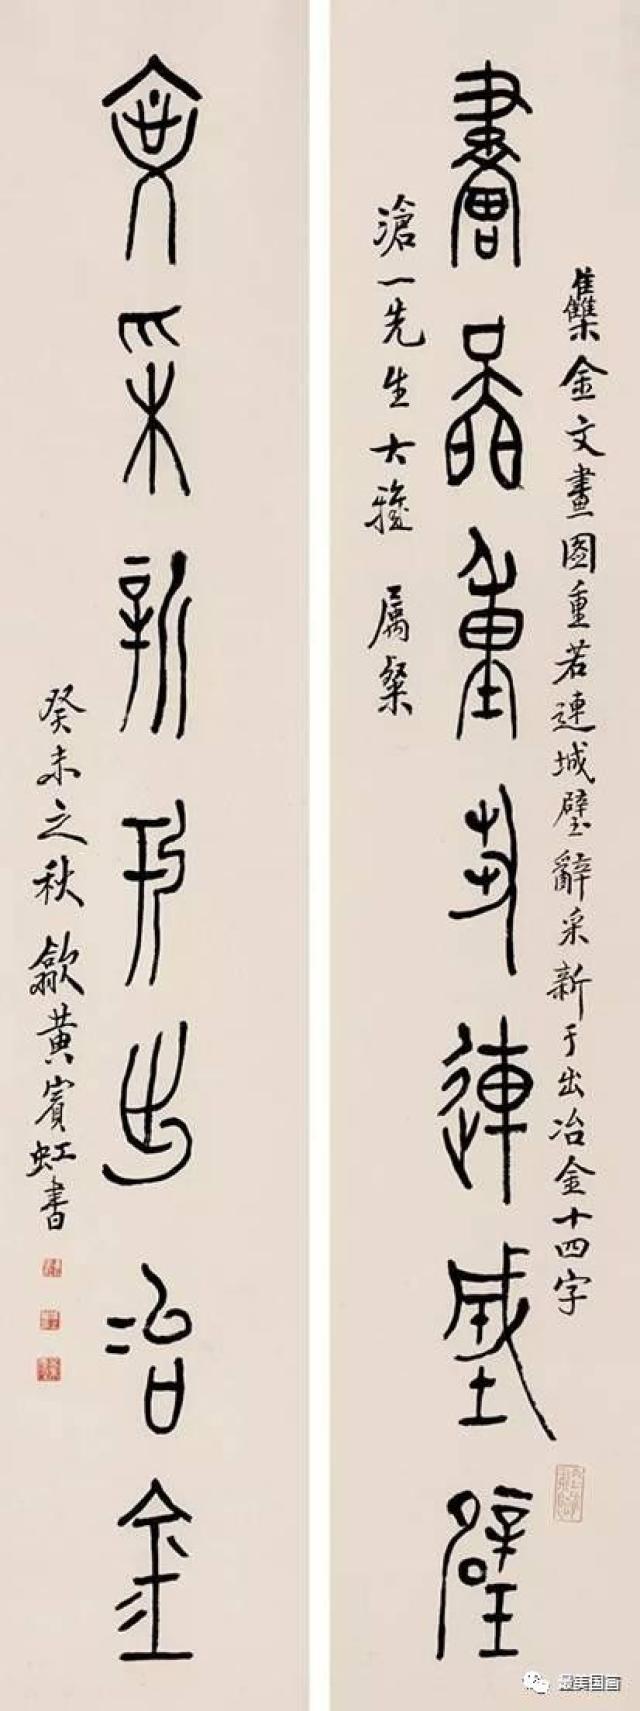 雧金文畫圖重若連城璧辭采新于出冶金十四字
畫圖重若連城璧
滄一先生大雅 屬粲
辭采新于出冶金
癸未之秋 歙黃賓虹書
最美国画